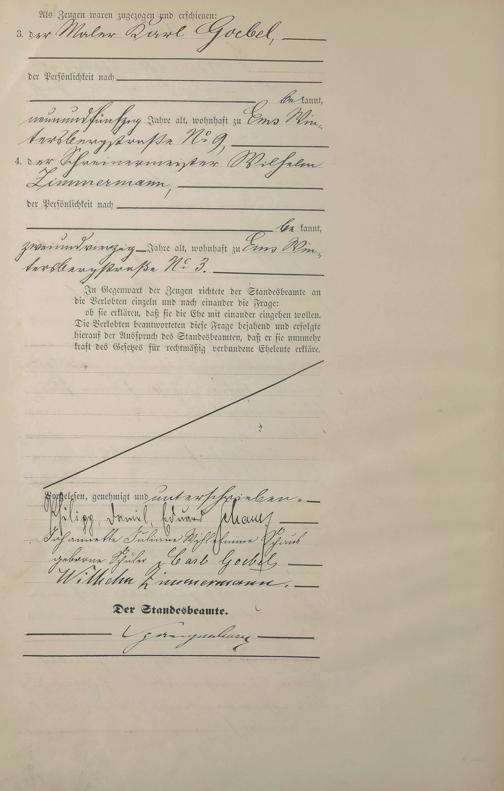 Als Zeugen waren zugezogen und erschienen:
3. der Maler Karl Goebel,
der Persönlichkeit nach
bekannt,
neunundfünfzig Jahre alt, wohnhaft zu Ems Win-
tersbergstraße No 9,
4. der Schreinermeister Wilhelm
Zimmermann,
der Persönlichkeit nach
bekannt,
zweiundvierzig Jahre alt, wohnhaft zu Ems Win-
tersbergstraße No 3.
In Gegenwart der Zeugen richtete der Standesbeamte an
die Verlobten einzeln und nach einander die Frage:
ob sie erklären, daß sie die Ehe mit einander eingehen wollen.
Die Verlobten beantworteten diese Frage bejahend und erfolgte
hierauf der Ausspruch des Standesbeamten, daß er sie nunmehr
kraft des Gesetzes für rechtmäßig verbundene Eheleute erkläre.
Vorgelesen, genehmigt und unterschrieben.
Philipp, Daniel, Eduard Schaus
Johannette Juliane Wilhelmine Schaus
geborne Karl Goebel
Wilhelm Zimmermann.
Der Standesbeamte.